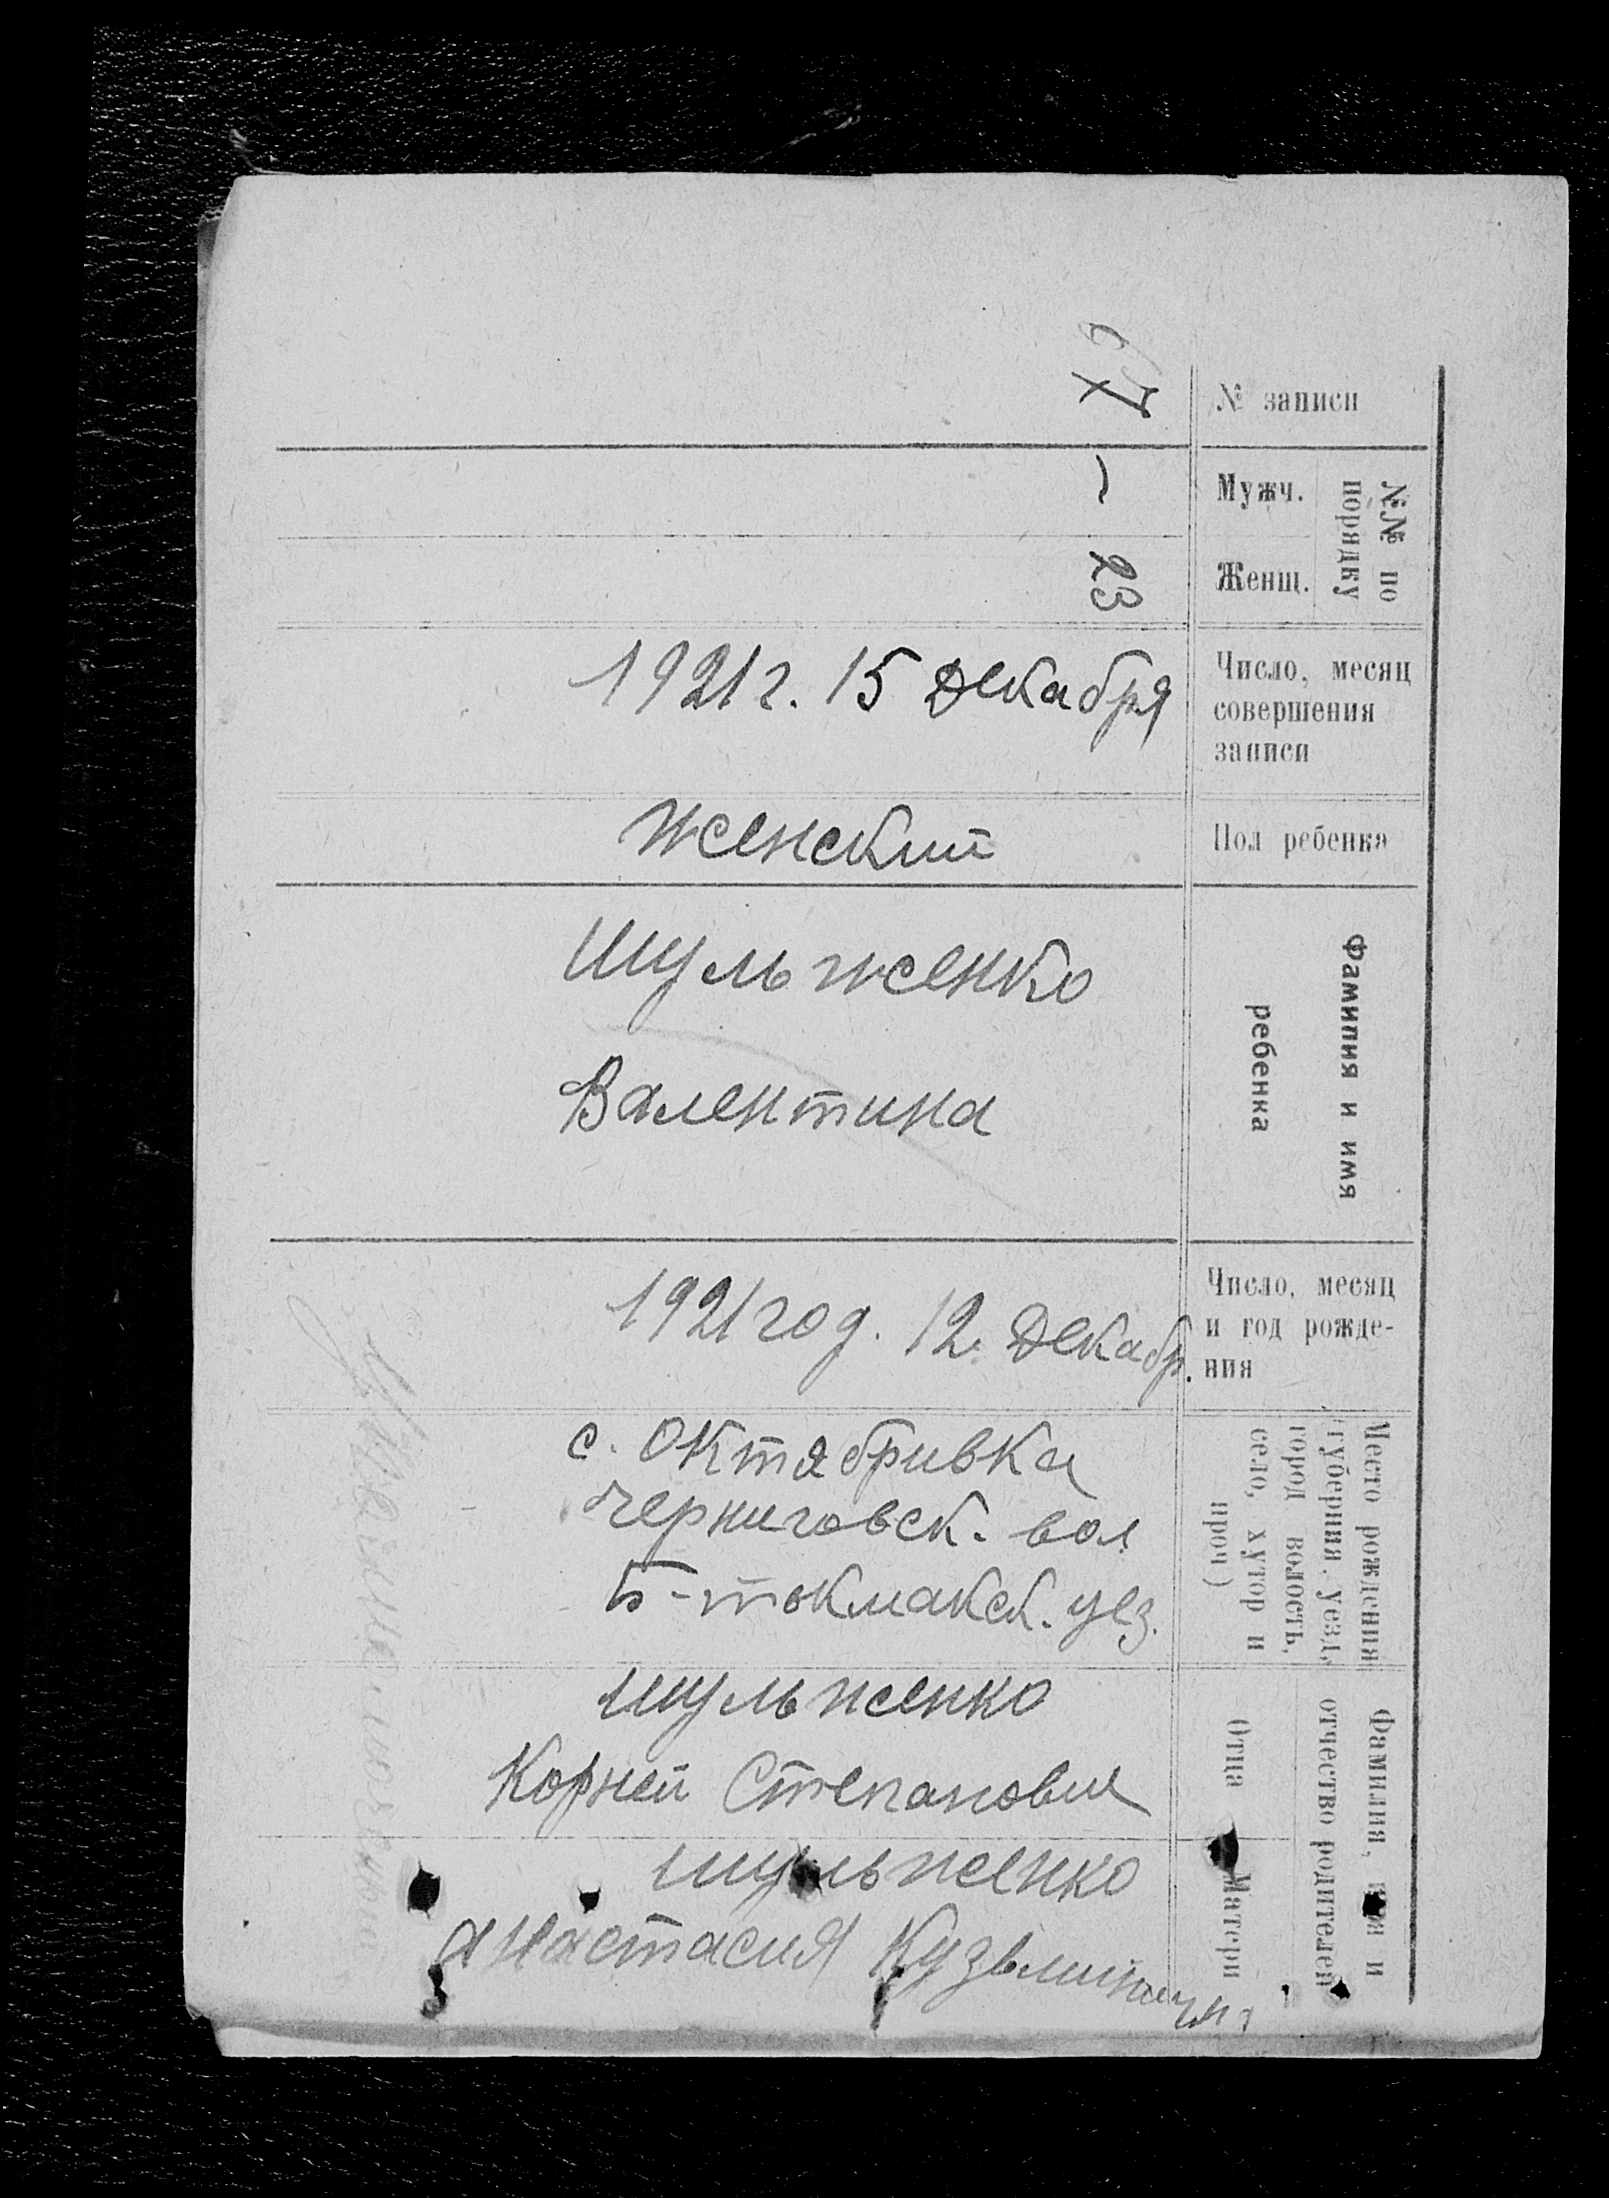 № записи
№№ по
порядку
Мужч.
–
Женщ.
23
Число, месяц
совершения
записи
1921 г. 15 декабря
Пол ребенка
Женский
Фамилия и имя
ребенка
Шульженко
Валентина
Число, месяц
и год рожде-
ния
1921 год. 12. декабр.
Место рождения
(губерния, уезд,
город волость,
село, хутор и
проч)
с. Октябривка
Черниговск. вол
Б-токмакск. уез.
Фамилия, имя и
отчество родителей
Отца
Шульженко
Корней Степанович
Матери
Шульженко
Анастасия